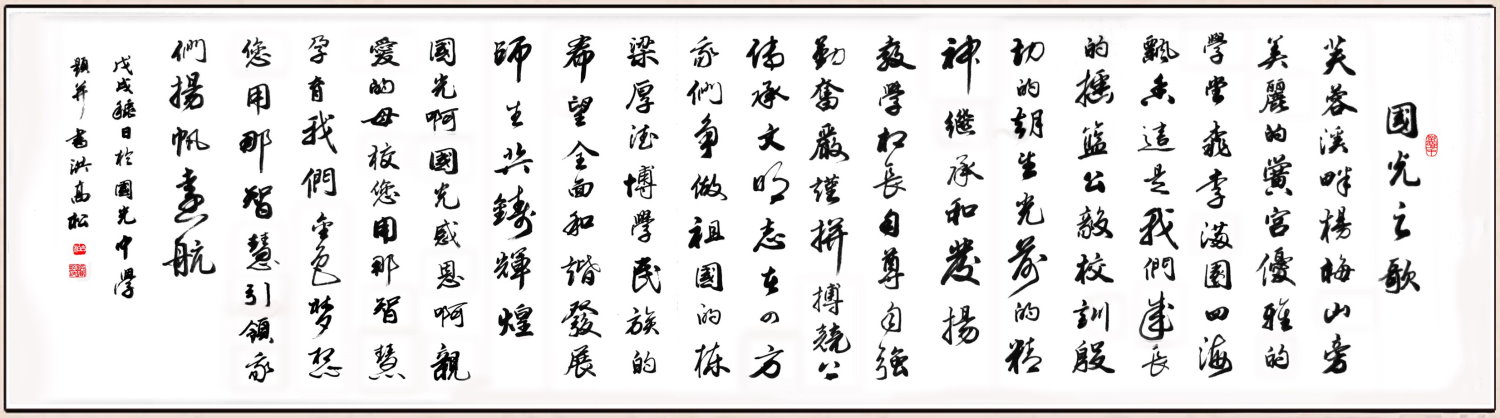 國光之歌
芙蓉溪畔楊梅山旁
美麗的黌宮優雅的
學堂桃李滿園四海
飄香這是我們成長
的搖籃公毅校訓殷
切的胡生光前的精
神繼承和發揚
教學相長自尊自強
勤奮嚴謹拼搏競公
傳承文明志在四方
我們爭做祖國的棟
梁厚德博學民族的
希望全面和諧發展
師生共鑄輝煌
國光啊國光感恩啊親
愛的母校您用那智慧
孕育我們金色夢想
您用那智慧引領我
們揚帆遠航
戊戌穐日於國光中學
題并書洪高松